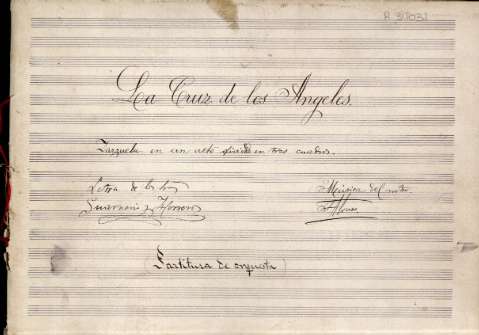 La Cruz de los Angeles.
Zarzuela en un acto dividido en tres cuadros.
Letra de los
y Herrero
Música del mtro.
F. Alonso
(Partitura de orquesta)